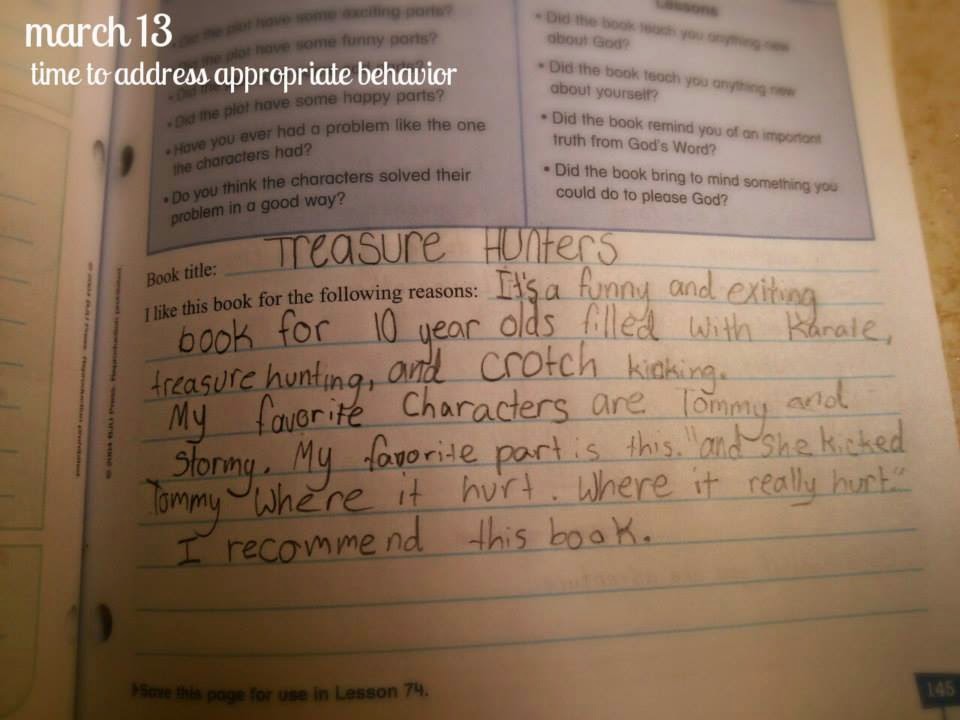 march 13
time to address appropriate behavior
the plot have some exciting parts?
the plot have some funny parts?
• Did the
• Did the plot have some happy parts?
• Have you ever had a problem like the one
the characters had?
• Do you think the characters solved their
problem in a good way?
Lessons
• Did the book teach you anything new
about God?
• Did the book teach you anything new
about yourself?
• Did the book remind you of an important
truth from God's Word?
• Did the book bring to mind something you
could do to please God?
Book title: Treasure Hunters
I like this book for the following reasons: It's a funny and exiting
book for 10 year olds filled with Karate,
treasure hunting, and crotch kicking.
My favorite Characters are Tommy and
Stormy. My favorite part is this. "and she kicked
Tommy where it hurt. Where it really hurt."
I recommend this book.
Save this page for use in Lesson 74.
145